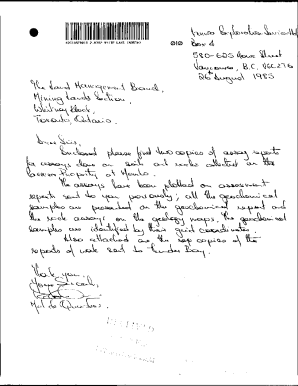 580-625 Howe Street
Vancouver, B.C. V6C2T6
26 August 1983
The Land Management Branch,
Mining Lands Section,
Whitney Block,
Toronto, Ontario.
Dear Sirs,
Enclosed please find two copies of assay reports
for assays done on soil and rocks collected on the
Property at
The assays have been plotted on assessment
reports sent to you previously; all the geochemical
samples are presented on the geochemical report and
the rock assays on the geology maps. The geochemical
samples are identified by their grid coordinates.
Also attached are the copies of the
reports of work sent to Thunder Bay.
Thank you.
Yours